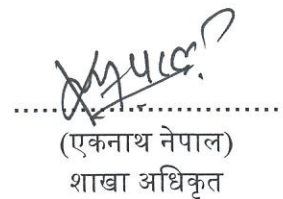 (एकनाथ नेपाल)
शाखा अधिकृत